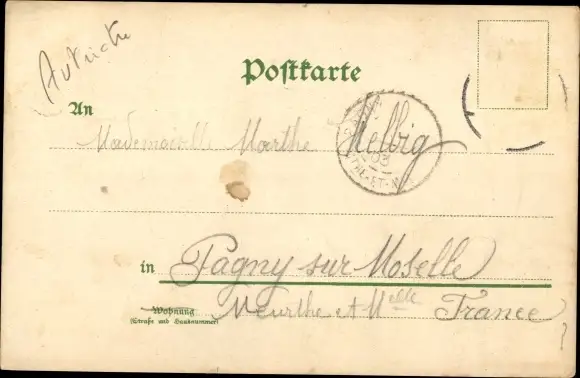 Autriche
Postkarte
An
Mademoiselle Marthe Helbig
03
in Pagny sur Moselle
Wohnung
(Straße und Hausnummer)
Meurthe et Melle France